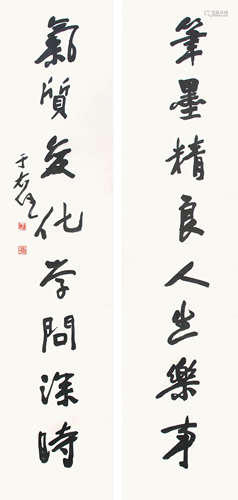 筆墨精良人生樂事
氣質变化学問深時
于右任